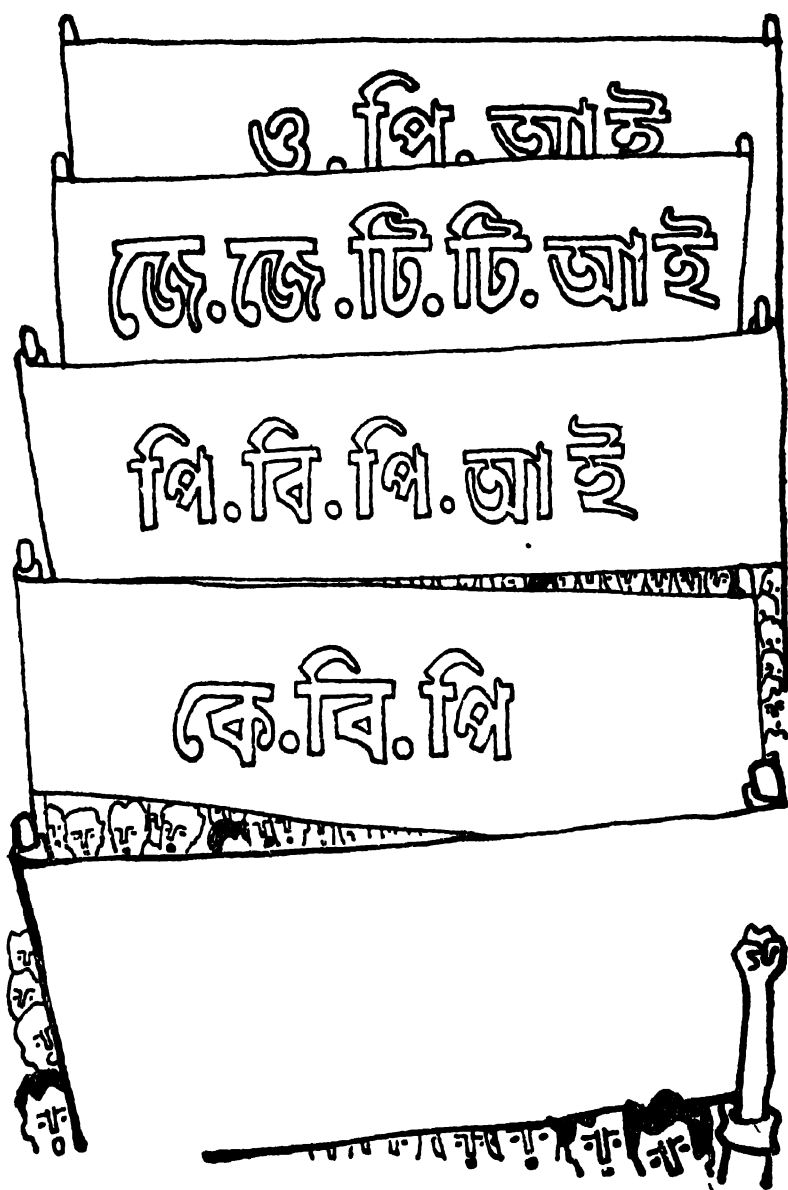 ও.পি.আই
জে.জে.টি.টি.আই
পি.বি.পি.আই
কে.বি.পি